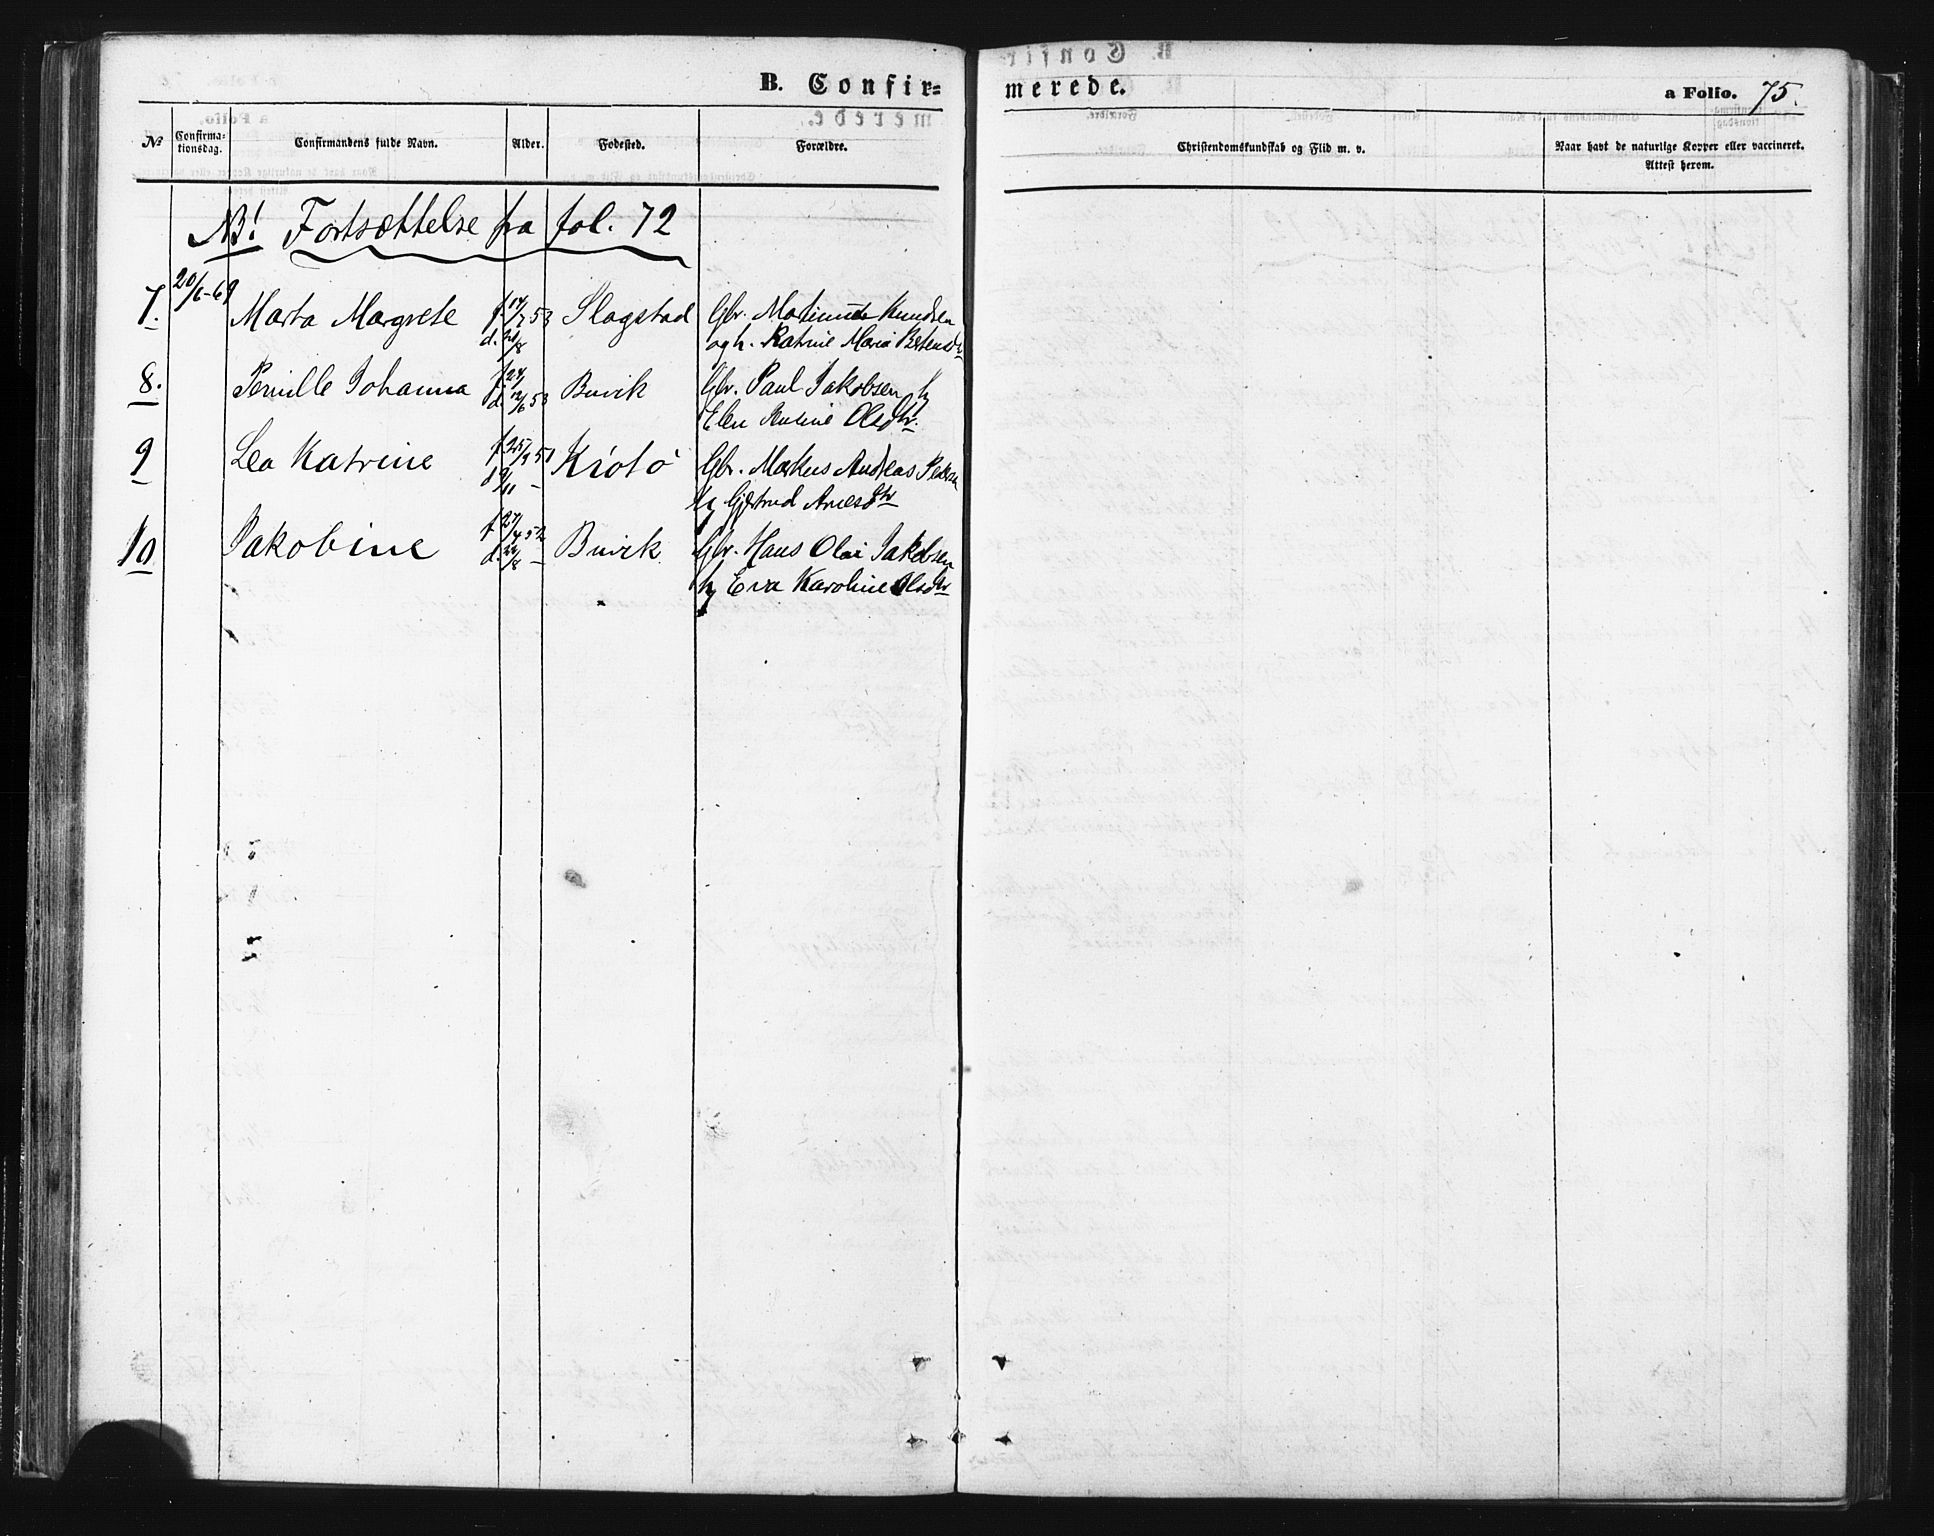 B. Confir=
merede.
a Folio. 75.
No
Confirma-
tionsdag.
Confirmandens fulde Navn.
Alder.
Fødested.
Forældre.
Christendomskundskab og Flid m. v.
Naar havt de naturlige Kopper eller vaccineret.
Attest herom.
NB! Fortsættelse fra fol. 72
7. 20/6-69 Marta Margrete f 53 Slagstad Gbr. Knudsen
d. /8 og h. Katrine Maria
8. Pernille Johanna f 24/ Buvik Gbr. Paul Jakobsen
d. 12/6 53 Elen Olsdtr.
9 Lea Katrine f 25/9 51 Krøtø Gbr. Markus Andreas
d 9/11 - Gjertrud Arnesdtr
10 Jakobine f 27/4 52 Buvik Gbr. Hans Olai Jakobsen
d. /8 - Eva Karoline Olsdtr